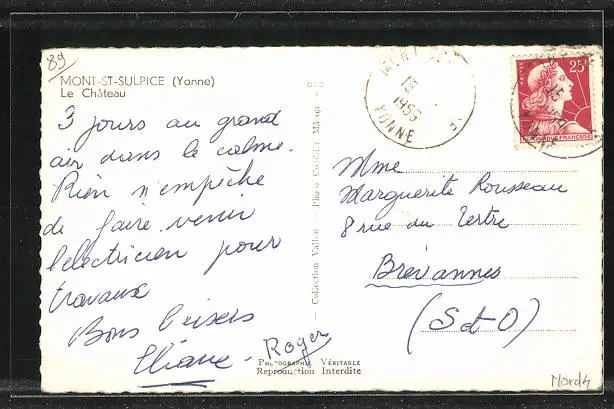 89
MONT-ST-SULPICE (Yonne)
Le Château
3 jours au grand
air dans le calme.
Rien n'empêche
de faire venir
l'électricien pour
travaux
Bons baisers
Eliane - Roger
Collection Vallon - Photo
PHOTOGRAPHIE VÉRITABLE
Reproduction Interdite
MONT
1955
YONNE
POSTES
25F
REPUBLIQUE FRANÇAISE
Mme
Marguerite Rousseau
8 rue du Tertre
Brévannes
(S et O)